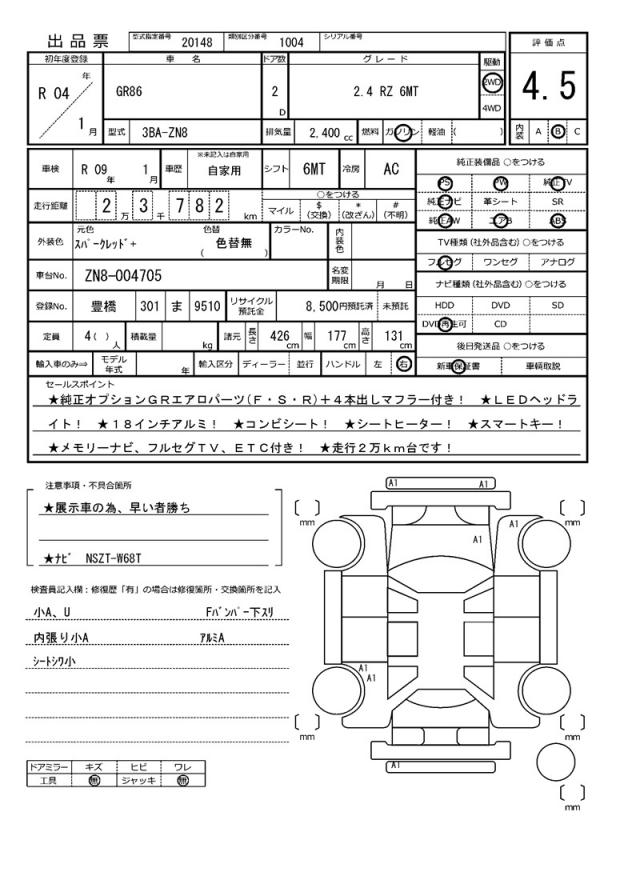 出品票 型式指定番号 20148 類別区分番号 1004 シリアル番号
評価点
4.5
内装 A B C
初年度登録 車名 ドア数 グレード 駆動
R 04 年 1 月 GR86 2 D 2.4 RZ 6MT 2WD 4WD
型式 3BA-ZN8 排気量 2,400 cc 燃料 ガソリン 軽油 ( )
車検 R 09 年 1 月 車歴 ※未記入は自家用 自家用 シフト 6MT 冷房 AC
走行距離 2 万 3 千 7 8 2 km ○をつける
マイル $ (交換) * (改ざん) # (不明)
外装色 元色 スパークレッド+ 色替 ( 色替無 ) カラーNo. 内装色
車台No. ZN8-004705 名変期限 月 日
登録No. 豊橋 301 ま 9510 リサイクル預託金 8,500円預託済 未預託
定員 4( ) 人 積載量 kg 諸元 長さ 426 cm 幅 177 cm 高さ 131 cm
輸入車のみ⇒ モデル年式 年 輸入区分 ディーラー 並行 ハンドル 左 右
純正装備品 ○をつける
PS PW 純正TV
純正ナビ 革シート SR
純正AW エアB ABS
TV種類 (社外品含む) ○をつける
フルセグ ワンセグ アナログ
ナビ種類 (社外品含む) ○をつける
HDD DVD SD
DVD再生可 CD
後日発送品 ○をつける
新車保証書 車輌取説
セールスポイント
★純正オプションGRエアロパーツ(F・S・R)+4本出しマフラー付き! ★LEDヘッドラ
イト! ★18インチアルミ! ★コンビシート! ★シートヒーター! ★スマートキー!
★メモリーナビ、フルセグTV、ETC付き! ★走行2万km台です!
注意事項・不具合箇所
★展示車の為、早い者勝ち
★ナビ NSZT-W68T
検査員記入欄:修復歴「有」の場合は修復箇所・交換箇所を記入
小A、U Fバンパー下スリ
内張り小A アルミA
シートシワ小
ドアミラー キズ ヒビ ワレ
工具 無 ジャッキ 無
A1 A1
[ ] mm [ ] mm
A1
A1
A1
A1
[ ] mm [ ] mm
A1
[ ] mm